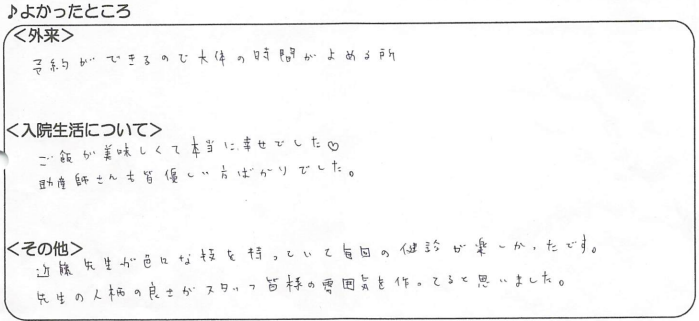 ♪よかったところ
＜外来＞
予約ができるので大体の時間がよめる所
＜入院生活について＞
ご飯が美味しくて本当に幸せでした♡
助産師さんも皆優しい方ばかりでした。
＜その他＞
近藤先生が色々な技を持っていて毎回の健診が楽しかったです。
先生の人柄の良さがスタッフ皆様の雰囲気を作ってると思いました。